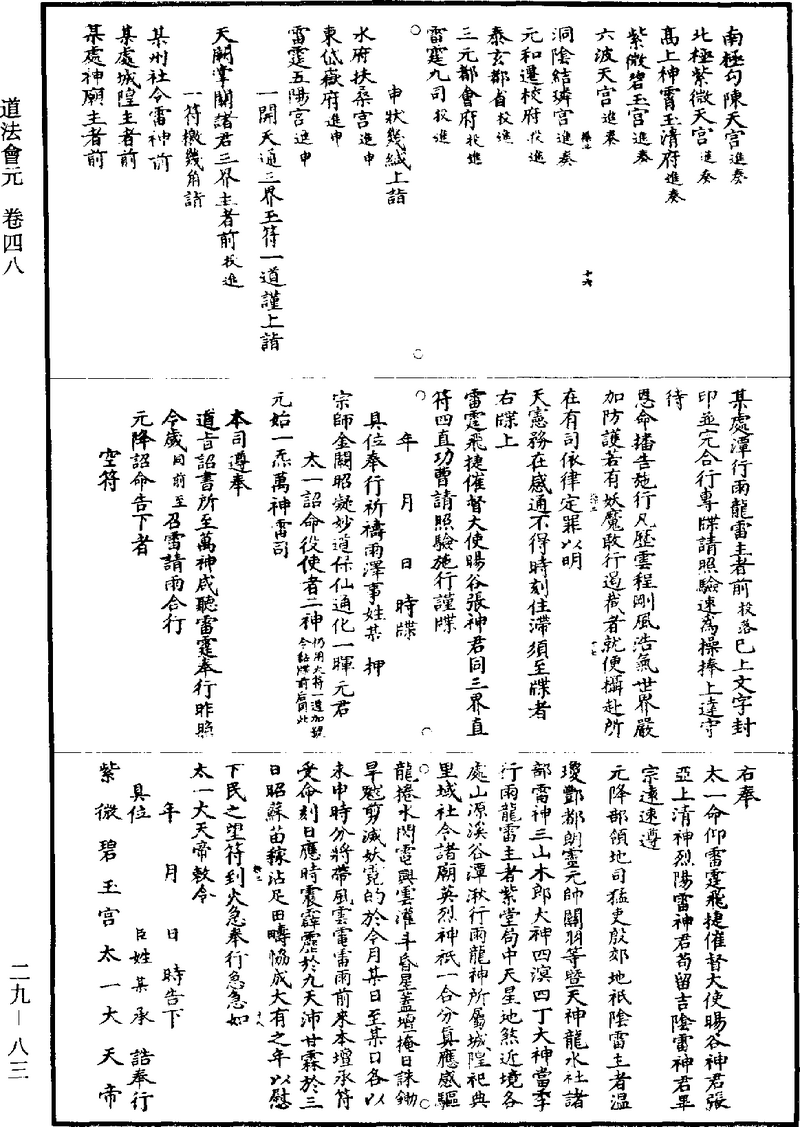 道法會元　卷四八
二九—八三
南極勾陳天宮進奏
北極紫微天宮進奏
高上神霄玉清府進奏
紫微碧玉宮進奏
六波天宮進奏
洞陰結璘宮進奏
元和遷校府投進
泰玄都省投進
三元都會府投進
雷霆九司投進
申狀幾緘上詣
水府扶桑宮進申
東岱嶽府進申
雷霆五陽宮進申
一開天通三界玉符一道謹上詣
天關掌關諸君三界主者前投進
一符檄幾角請
某州社令雷神前
某處城隍主者前
某處神廟主者前
某處潭行雨龍雷主者前投落已上文字封
印並完合行專牒請照驗速為操捧上達守
待
恩命播告施行凡歷雲程剛風浩氣世界嚴
加防護若有妖魔敢行遏截者就便攝赴所
在有司依律定罪以明
天憲務在感通不得時刻住滯須至牒者
右牒上
雷霆飛捷催督大使暘谷張神君同三界直
符四直功曹請照驗施行謹牒
年　月　日　時牒
具位奉行祈禱雨澤事姓某　押
宗師金闕昭凝妙道保仙通化一暉元君
太一詔命役使者二神
元始一炁萬神雷司
本司遵奉
道旨詔書所至萬神咸聽雷霆奉行昨照
令歲同前至召雷請雨合行
元降詔命告下者
空符
右奉
太一命仰雷霆飛捷催督大使暘谷神君張
亞上清神烈陽雷神君苟留吉陰雷神君畢
宗遠速遵
元降部領地司猛吏殷郊地祇陰雷主者溫
瓊酆都朗靈元帥關羽等暨天神龍水社諸
部雷神三山木郎大神四溟四丁大神當季
行雨龍雷主者紫堂局中天星地煞近境各
處山源溪谷潭湫行雨龍神所屬城隍祀典
里域社令諸廟英烈神祇一合分真應感驅
龍捲水閃電興雲灌斗昏星蓋壇掩日誅鋤
旱魃剪滅妖氛的於今月某日至某日各以
未申時分將帶風雲雷電雨前來本壇承符
受命刻日應時震霹靂於九天沛甘霖於三
日昭蘇苗稼沾足田疇恊成大有之年以慰
下民之望符到火急奉行急急如
太一大天帝敕令
年　月　日　時告下
具位　臣姓某承　誥奉行
紫微碧玉宮太一大天帝